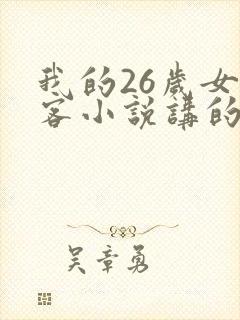 我的26歲女
客小説講的
吳章勇